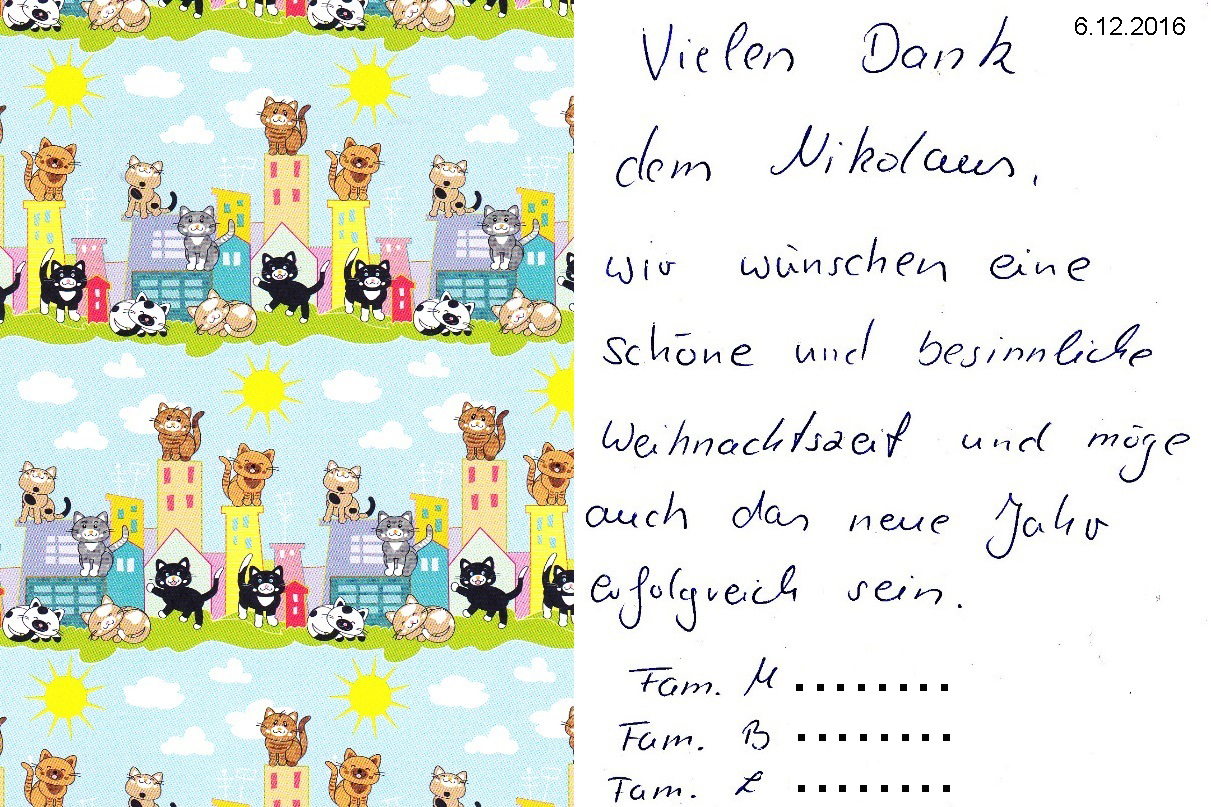 6.12.2016
Vielen Dank
dem Nikolaus,
wir wünschen eine
schöne und besinnliche
Weihnachtszeit und möge
auch das neue Jahr
erfolgreich sein.
Fam. M ........
Fam. B ........
Fam. L ........